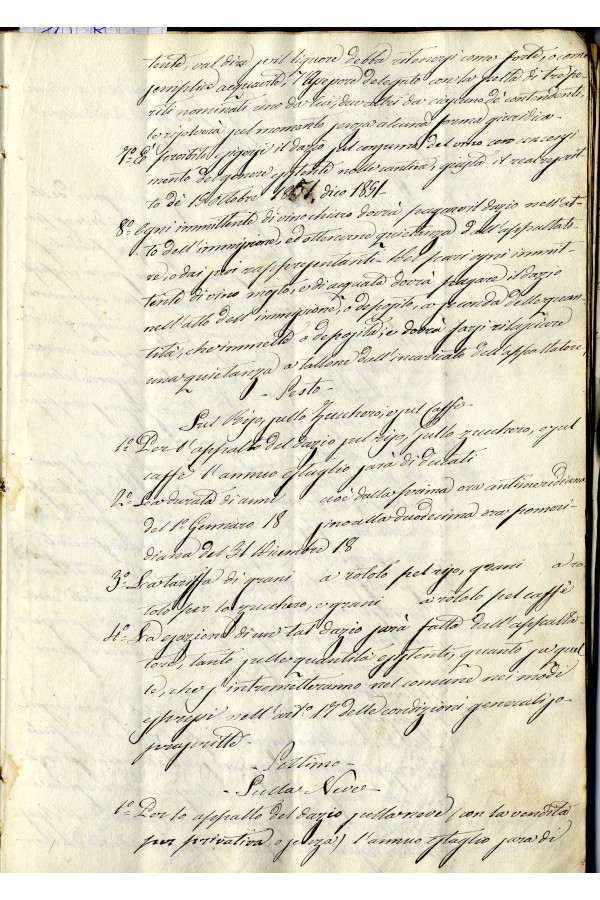 tente, val dire se il liquore debba ritenersi come forte, o come
semplice acquarto, l'Assessore delegato con la scelta di tre pe-
riti nominati uno da lui, due altri da ciascuno de' contendenti,
lo risolverà sul momento senza alcuna forma giuridica -
7.° È proibito esigersi il dazio sul consumo del vino con censi-
mento del genere esistente nelle cantine, giusta il real rescrit-
to de' 19 Ottobre 1851, dico 1851 -
8.° Ogni immittente di vino chiaro dovrà pagare il dazio nell'at-
to dell'immissione, ed ottenerne quietanza dall'appaltato-
re, o dai suoi rappresentanti - Del pari ogni immit-
tente di vino mosto, e di acquato dovrà pagare il dazio
nell'atto dell'immissione, o deposito, a seconda delle quan-
tità, che immette o deposita, e dovrà farsi rilasciare
una quietanza a tallone dall'incaricato dell'appaltatore,
- Sesto -
Sul Riso, sullo Zucchero, e sul Caffè -
1.° Per l'appalto del dazio sul riso, sullo zucchero, e sul
caffè l'annuo estaglio sarà di Ducati
2.° La durata di anni cioè dalla prima ora antimeridiana
del 1.° Gennaro 18 sino alla duodecima ora pomeri-
diana del 31 Dicembre 18
3.° La tariffa di grani a rotolo pel riso, grani a ro-
tolo per lo zucchero, e grani a rotolo pel caffè
4.° La esazione di un tal dazio sarà fatta dall'appalta-
tore, tanto sulle quantità esistenti, quanto su quel-
le, che s'intrometteranno nel comune nei modi
espressi nell'art.° 17 delle condizioni generali so-
prascritte -
- Settimo -
- Sulla Neve -
1.° Per lo appalto del dazio sulla neve (con la vendita
per privativa, o senza) l'annuo estaglio sarà di